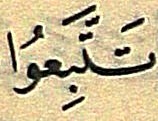 تَتَّبِعُوا